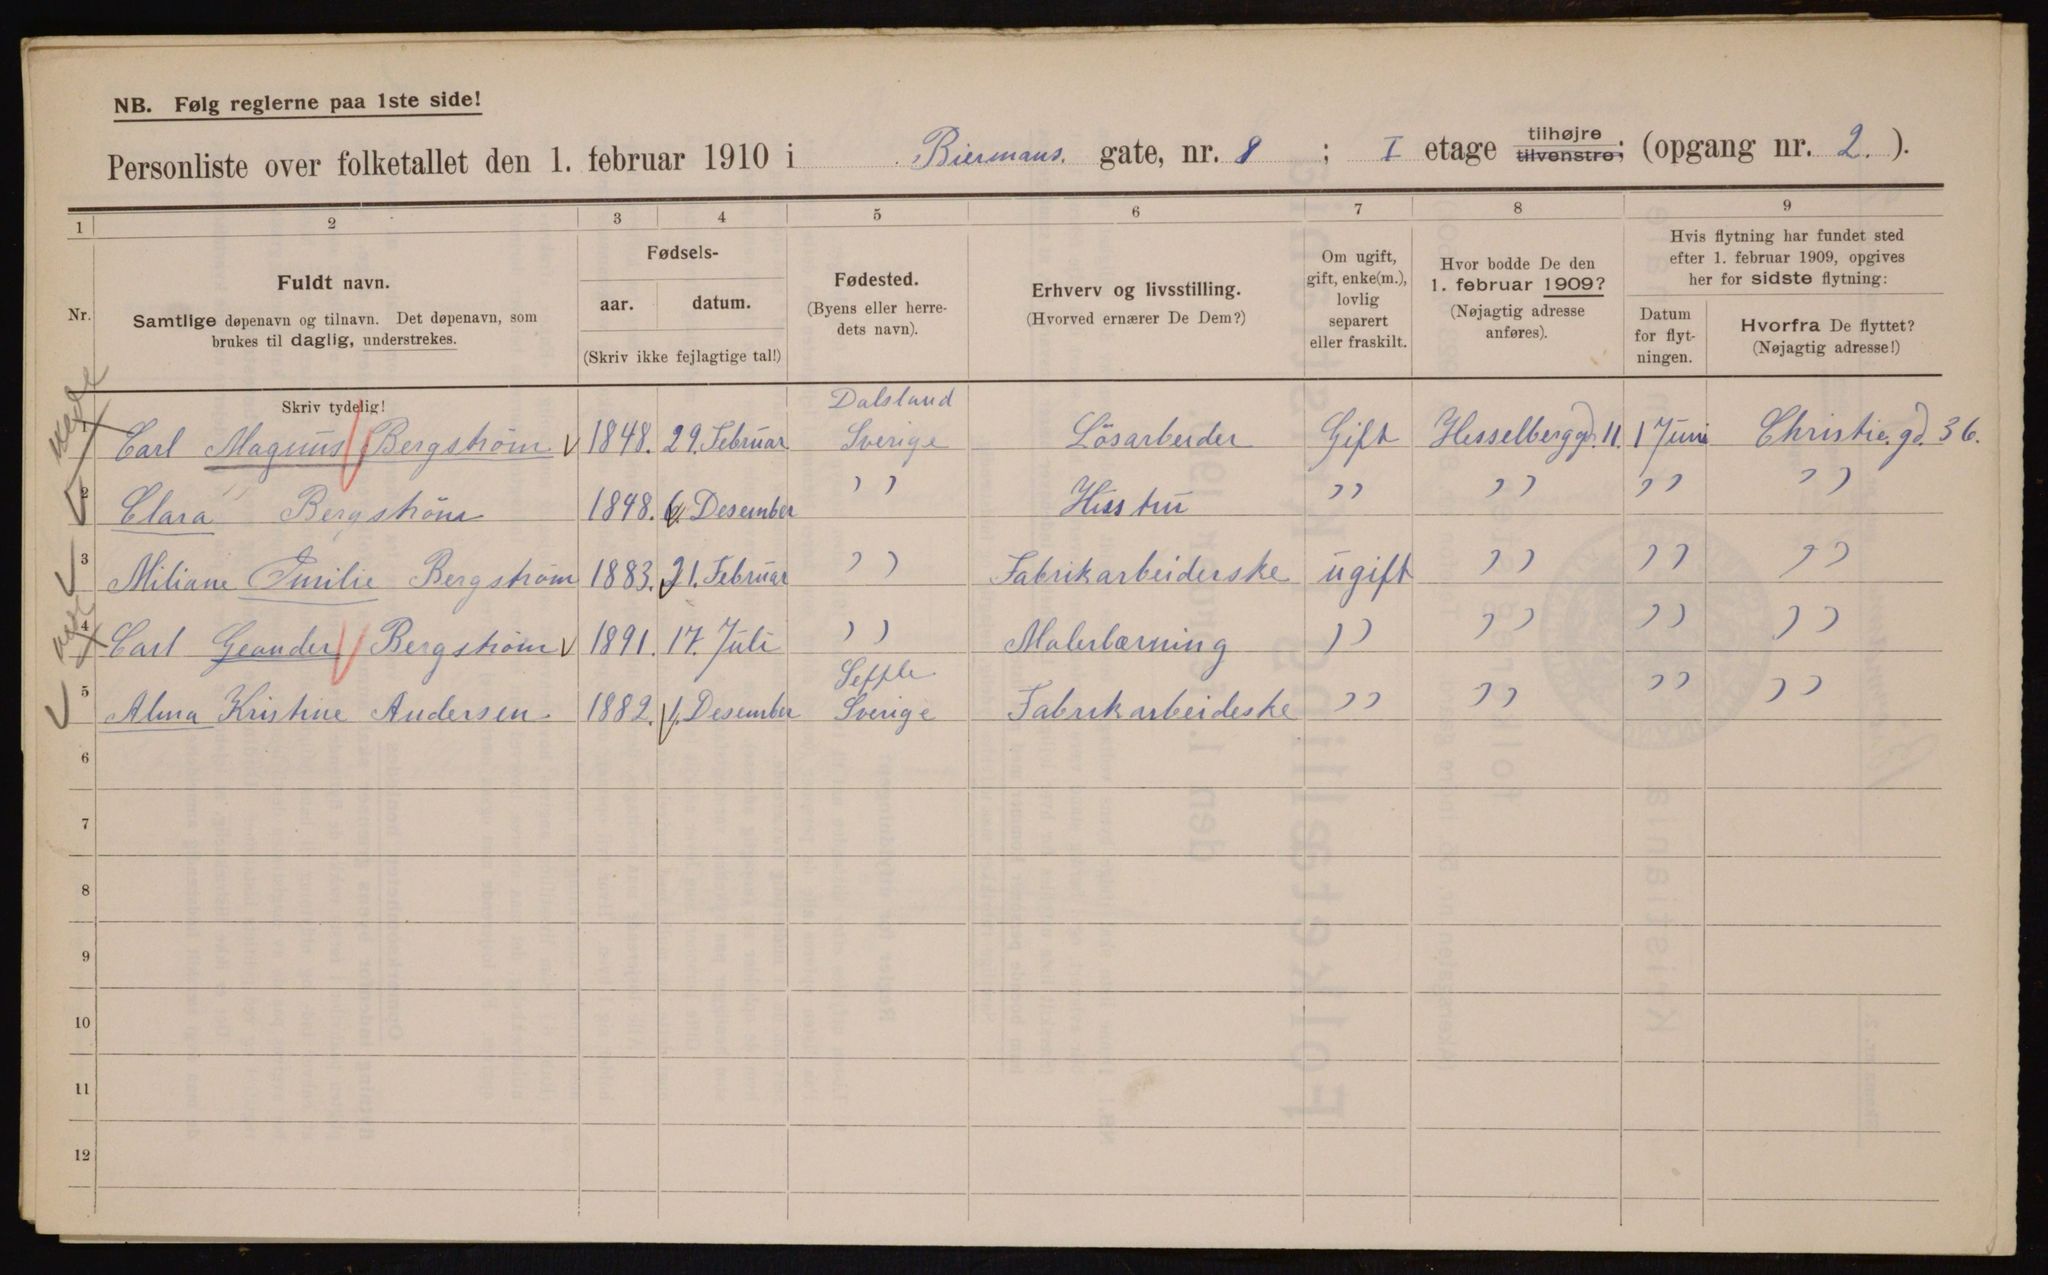 NB. Følg reglerne paa 1ste side!
Personliste over folketallet den 1. februar 1910 i Biermans. gate, nr. 8 ; I etage tilhøjre tilvenstre; (opgang nr. 2. ).
1 2 3 4 5 6 7 8 9
Nr.
Fuldt navn.
Samtlige døpenavn og tilnavn. Det døpenavn, som
brukes til daglig, understrekes.
Fødsels-
aar. datum.
(Skriv ikke fejlagtige tal!)
Fødested.
(Byens eller herre-
dets navn).
Erhverv og livsstilling.
(Hvorved ernærer De Dem?)
Om ugift,
gift, enke(m.),
lovlig
separert
eller fraskilt.
Hvor bodde De den
1. februar 1909?
(Nøjagtig adresse
anføres).
Hvis flytning har fundet sted
efter 1. februar 1909, opgives
her for sidste flytning:
Datum
for flyt-
ningen.
Hvorfra De flyttet?
(Nøjagtig adresse!)
Skriv tydelig!
Dalsland
1 Carl Magnus Bergstrøm 1848. 29. Februar Sverige Lösarbeider Gift Hesselberggd. 11. 1 Juni Christie. gd. 36.
2 Clara Bergstrøm 1848. 6. Desember " Hustru " " " "
3 Miliane Emilie Bergstrøm 1883. 21. Februar " Fabrikarbeiderske ugift " " "
4 Carl Geander Bergstrøm 1891. 17. Juli " Malerlærning " " " "
Seffle
5 Alma Kristine Andersen. 1882. 1. Desember Sverige Fabrikarbeideske " " " "
6
7
8
9
10
11
12